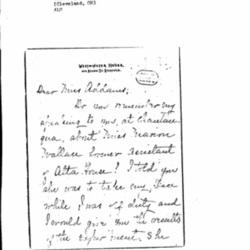 Cleveland, OH)
Dear Miss Addams;
Do you remember my
speaking to you, at Chautau-
qua, about Miss Marion
Wallace former assistant
of Alta House? I told you
she was to take my place
while I was off duty and
I would give you the results
of the experiment. She